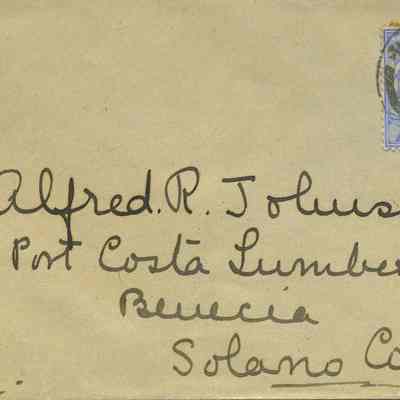 Alfred. R. Johns
Port Costa Lumber
Benecia
Solano Co